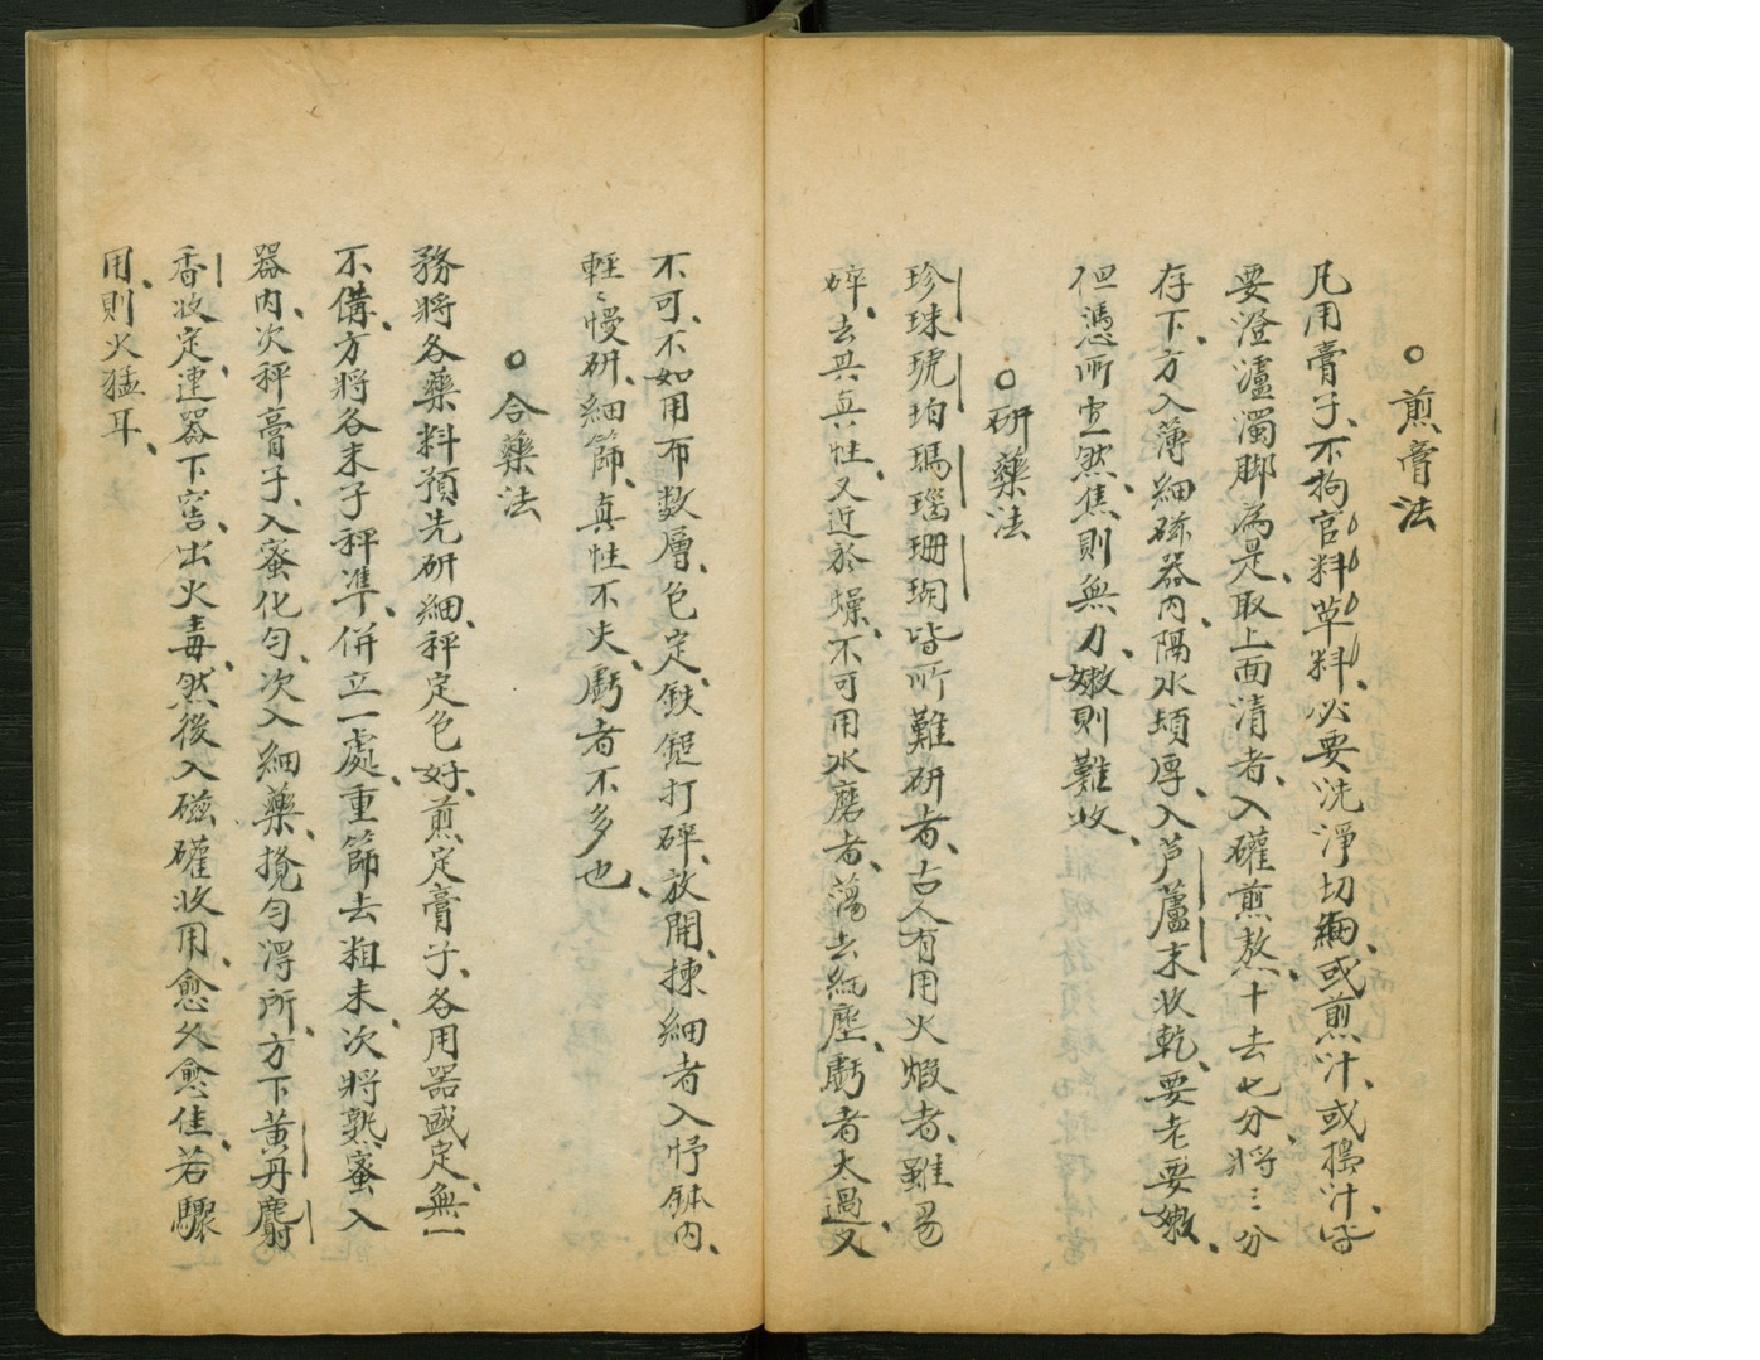 ○煎膏法
凡用膏子、不拘官料草料、必要洗淨切細、或煎汁、或搗汁、皆
要澄瀘濁脚為是、取上面清者、入礶煎熬、十去七分、將三分
存下、方入薄細磁器內、隔水頓厚、入芦薈末收乾、要老要嫩、
但憑所宜、然焦則無力、嫩則難收、
○研藥法
珍珠琥珀瑪瑙珊瑚皆所難研者、古人有用火煅者、雖易
碎、去其真性、又近於燥、不可用水磨者、蕩去細塵、虧者太過、又
不可、不如用布数層、包定、鉄鎚打碎、放開、揀細者入杍鉢內、
輕〻慢研、細篩、真性不失、虧者不多也、
○合藥法
務將各藥料預先研細、秤定包好、煎定膏子、各用器盛定、無一
不備、方將各末子秤準、併立一處、重篩去粗末、次將熟蜜入
器內、次秤膏子、入蜜化匀、次入細藥、攪匀得所、方下黃丹麝
香收定、連器下窖、出火毒、然後入磁礶收用、愈久愈佳、若驟
用、則火猛耳、